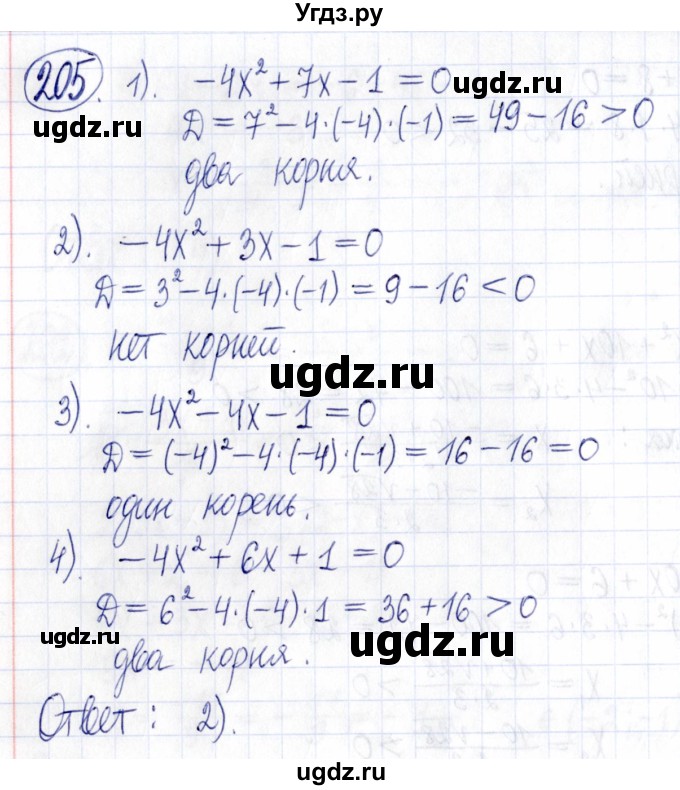 Угдз.ру
205. 1). -4x² + 7x - 1 = 0
ugdz.ru
ugdz.ru
D = 7² - 4·(-4)·(-1) = 49 - 16 > 0
два корня.
2). -4x² + 3x - 1 = 0
D = 3² - 4·(-4)·(-1) = 9 - 16 < 0
нет корней.
ugdz.ru
ugdz.ru
3). -4x² - 4x - 1 = 0
D = (-4)² - 4·(-4)·(-1) = 16 - 16 = 0
один корень.
4). -4x² + 6x + 1 = 0
D = 6² - 4·(-4)·1 = 36 + 16 > 0
ugdz.ru
ugdz.ru
два корня.
Ответ: 2).
ugdz.ru